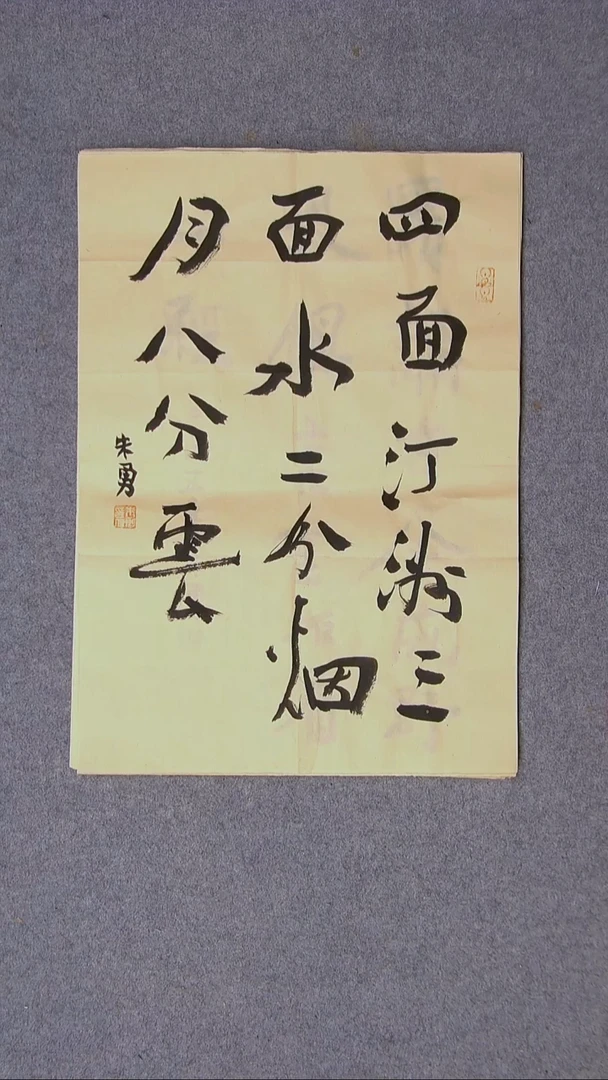 四面汀洲三
面水二分烟
月八分雲
朱勇